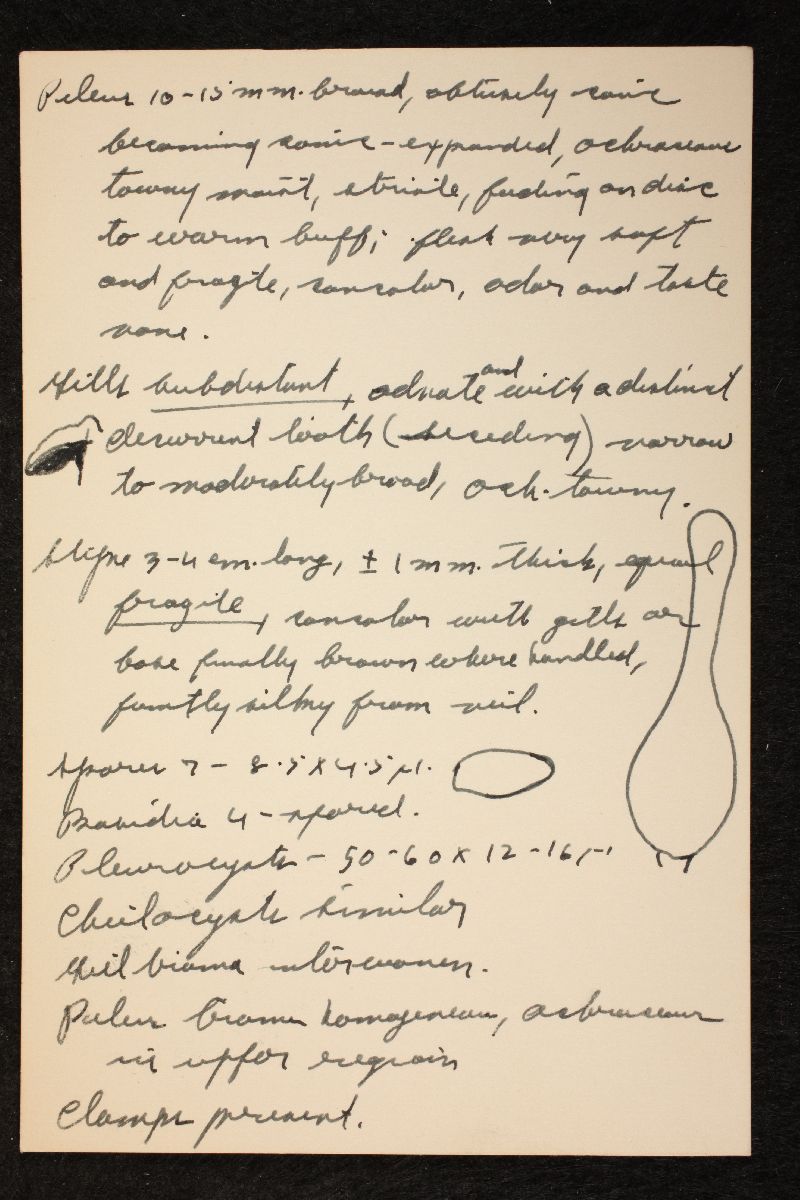 Pileus 10-15 mm. broad, obtusely conic
becoming conic-expanded, ochraceous
tawny moist, striate, fading on disc
to warm buff; flesh very soft
and fragile, concolor, odor and taste
none.
Gills subdistant, adnate and with a distinct
decurrent tooth (seceding) narrow
to moderately broad, och. tawny.
Stipe 3-4 cm. long, ± 1 mm. thick, equal
fragile, concolor with gills or
base finally brown where handled,
faintly silky from veil.
Spores 7 - 8.5 x 4.5 µ.
Basidia 4-spored.
Pleurocysts - 50-60 x 12-16 µ
Cheilocysts similar
Gill trama interwoven.
Pileus trama homogeneous, ochraceous
in upper region
Clamps present.